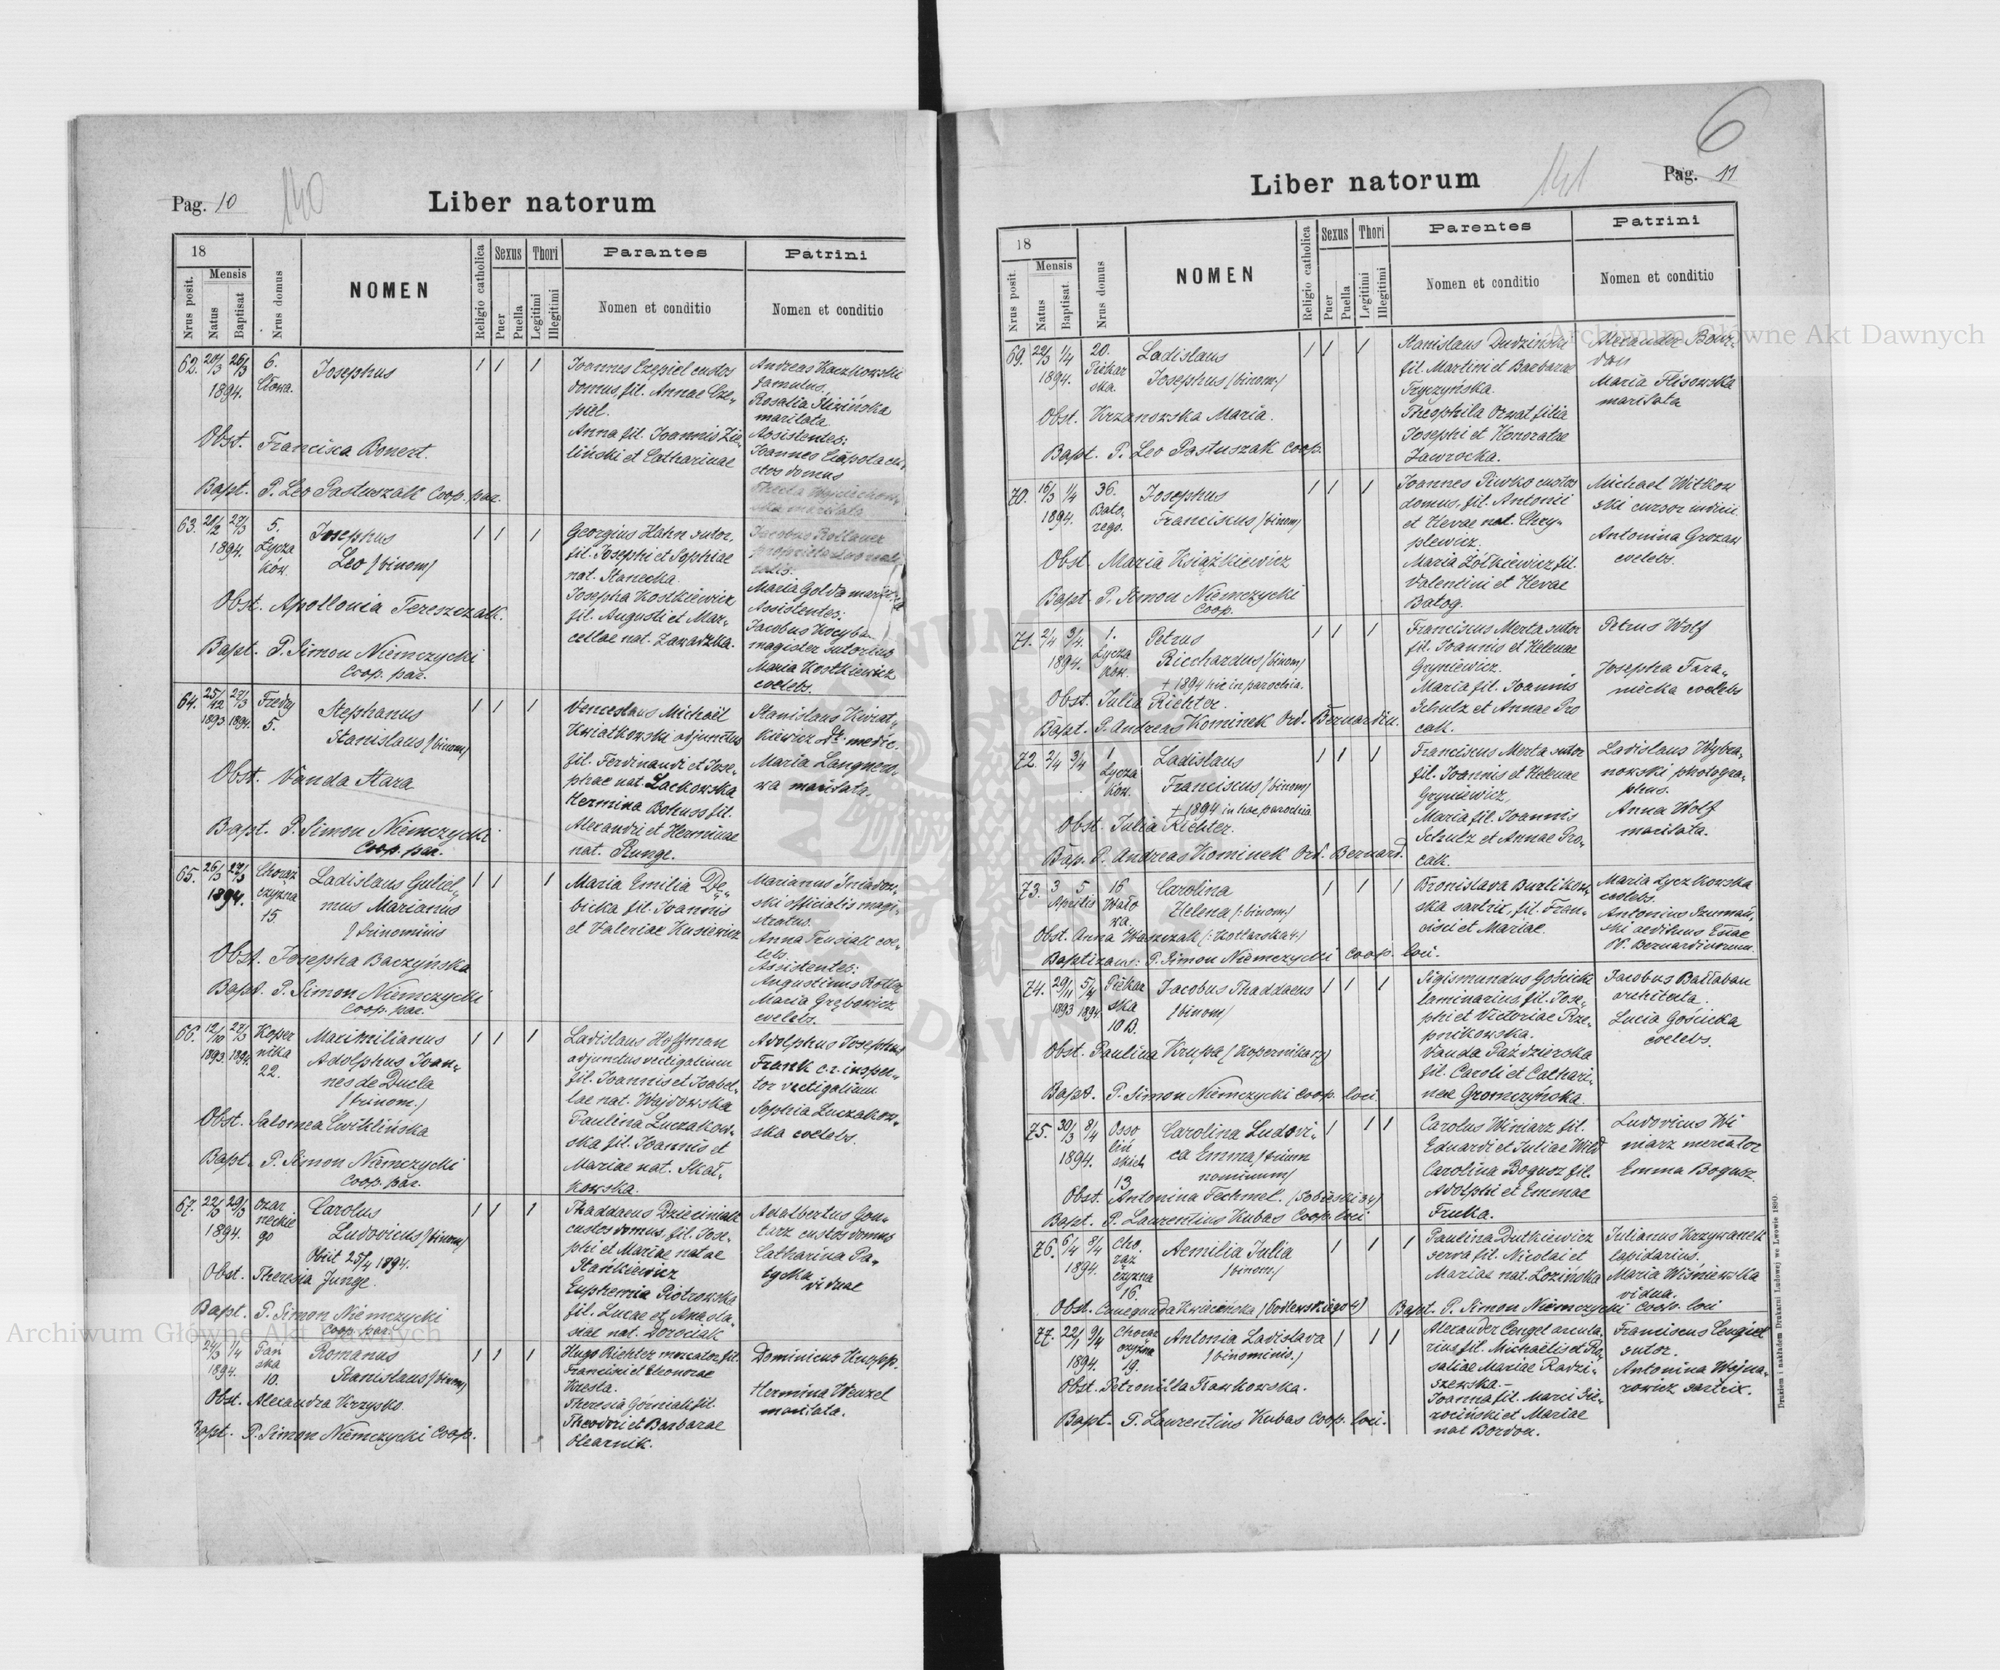 Pag. 10
140
Liber natorum
18
Mensis
Nrus posit.
Natus
Baptisat
Nrus domus
NOMEN
Religio catholica
Sexus
Puer
Puella
Thori
Legitimi
Illegitimi
Parantes
Nomen et conditio
Patrini
Nomen et conditio
62. 20/3 26/3 1894.
6.
Josephus
Obst. Francisca Bonert.
Bapt. P. Leo Pastuszak Coop. par.
Joannes Czepiel custos
domus, fil. Annae Cze-
piel.
Anna fil. Joannis Zie-
liński et Catharinae
Andreas Kaczkowski
famulus.
Rosalia Śliwińska
maritata
Assistentes:
custos domus
63. 27/3
1894.
5.
Łycza
ków.
Josephus
Leo /binom/
Obst. Apollonia Tereszczak.
Bapt. P. Simon Niemczycki
Coop. par.
Georgius Hahn sutor.
fil. Josephi et Sophiae
nat. Stanecka.
Josepha Kostkiewicz
fil. Augusti et Mar-
cellae nat. Zawadzka.
Maria Golda
Assistentes:
Jacobus Kocyba
magister sutorius
Maria Kostkiewicz
coelebs.
64. 25/12 27/3
1893 1894.
Fredry
5.
Stephanus
Stanislaus /binom/
Obst. Vanda Stara
Bapt. P. Simon Niemczycki
Coop. par.
Venceslaus Michaël
Kwiatkowski adjunctus
fil. Ferdinandi et Jose-
phae nat. Lackowska
Hermina Bohuss fil.
Alexandri et Herminae
nat. Runge.
Stanislaus Kwiat-
kiewicz Dr. medic.
Maria Langners-
wa maritata.
65. 26/3 27/3
1894.
Chorąż
czyzna
15.
Ladislaus Guliel-
mus Marianus
/trinominis
Obst. Josepha Baczyńska
Bapt. P. Simon Niemczycki
Coop. par.
Maria Emilia Dę-
bicka fil. Joannis
et Valeriae Kusiewicz
Marianus Śniadow-
ski officialis magi-
stratus.
Anna Trusiak coe-
lebs.
Assistentes:
Maria Grębowicz
coelebs.
66. 12/10 27/3
1893. 1894.
Koper
nika
22.
Maximilianus
Adolphus Joan-
nes de Ducla
/trinom./
Obst. Salomea Ćwiklińska
Bapt. P. Simon Niemczycki
Coop. par.
Ladislaus Hoffman
adjunctus vectigalium
fil. Joannis et Isabel-
lae nat. Wajdowska
Paulina Luczakow-
ska fil. Joannis et
Mariae nat. Skał-
kowska.
Adolphus Josephus
Frank c. r. inspec-
tor vectigalium
Sophia Luczakow-
ska coelebs.
67. 22/3 29/3
1894.
Czar
neckie
go
Carolus
Ludovicus /binom/
Obiit 25/4 1894.
Obst. Theresia Junge.
Bapt. P. Simon Niemczycki
Coop. par.
Thaddaeus Dzieciniak
custos domus, fil. Jose-
phi et Mariae natae
Stańkiewicz
Euphemia Piotrowska
fil. Lucae et Anasta-
siae nat. Dorociak
Adalbertus Gon-
tarz custos domus
Catharina Pa-
tycka
viduae
24/3 1/4
1894.
Pań
ska
10.
Romanus
Stanislaus /binom/
Obst. Alexandra Krzysko.
Bapt. P. Simon Niemczycki Coop.
Hugo Richter mercator fil.
Francisci et Eleonorae
Kresta.
Theresia Górniak fil.
Theodori et Barbarae
Olearnik.
Dominicus Knopp.
Hermina Wenzel
maritata.
6
Pag. 11
141
Liber natorum
18
Mensis
Nrus posit.
Natus
Baptisat.
Nrus domus
NOMEN
Religio catholica
Sexus
Puer
Puella
Thori
Legitimi
Illegitimi
Parentes
Nomen et conditio
Patrini
Nomen et conditio
69. 22/3 1/4
1894.
20.
Piekar
ska.
Ladislaus
Josephus /binom/
Obst. Krzanowska Maria.
Bapt. P. Leo Pastuszak coop.
Stanislaus Dudziński
fil. Martini et Barbarae
Tryczyńska.
Theophila Orwat filia
Josephi et Honoratae
Jaworocka.
Alexander Bour-
don
Maria Flisowska
maritata
70. 16/3 1/4
1894.
36.
Bato-
rego.
Josephus
Franciscus /binom/
Obst. Maria Książkiewicz
Bapt. P. Simon Niemczycki
Coop.
Joannes Piwko custos
domus, fil. Antonii
et Hevae nat. Chry-
plewicz.
Maria Żółkiewicz fil.
Valentini et Hevae
Batog.
Michael Witkow
ski cursor
Antonina Grozan
coelebs.
71. 2/4 3/4
1894.
1.
Łycza
ków.
Petrus
Ricchardus /binom/
+ 1894 hic in parochia.
Obst. Julia Richter.
Bapt. P. Andreas Kominek Ord. Bernardin.
Franciscus Merta sutor
fil. Joannis et Helenae
Gryniewicz.
Maria fil. Joannis
Schulz et Annae Pro
cak.
Petrus Wolf
Josepha Tara-
niecka coelebs
72. 2/4 3/4
1
Łycza
ków.
Ladislaus
Franciscus /binom/
+ 1894 in hac parochia
Obst. Julia Richter.
Bap. P. Andreas Kominek Ord. Bernard.
Franciscus Merta sutor
fil. Joannis et Helenae
Gryniewicz,
Maria fil. Joannis
Schulz et Annae Pro-
cak.
Ladislaus Wybra-
nowski photogra-
phus.
Anna Wolf
maritata.
73. 3 5
Aprilis
16
Wało
wa.
Carolina
Helena /:binom:/
Obst. Anna Waszczak (:Kotlarska 4:)
Baptizans: P. Simon Niemczycki Coop. loci.
Bronislava Burlikow-
ska sartrix, fil. Fran-
cisci et Mariae.
Maria Łyczkowska
coelebs.
Antonius Szumań-
ski aedituus Eccae
PP. Bernardinorum.
74. 29/11 5/4
1893 1894.
Piekar
ska
10 B.
Jacobus Thaddaeus
/binom/
Obst. Paulina Krupa (Kopernika 17)
Bapt. P. Simon Niemczycki coop. loci.
Sigismundus Gościcki
laminarius, fil. Jose-
phi et Victoriae Prze-
pnikowska.
Vanda Październska
fil. Caroli et Cathari-
nae Gromczyńska.
Jacobus Bałłaban
architecta.
Lucia Gościcka
coelebs.
75. 30/3 8/4
1894.
Osso
liń
skich
13
Carolina Ludovi-
ca Emma /trium
nominum/
Obst. Antonina Techmet. (Sobieski 34)
Bapt. P. Laurentius Kubas Coop. loci
Carolus Winiarz fil.
Eduardi et Juliae Wild
Carolina Bogusz fil.
Adolphi et Emmae
Fruka.
Ludovicus Wi
niarz mercator
Emma Bogusz.
76. 6/4 8/4
1894.
Cho.
rąż
czyzna
16.
Aemilia Julia
/binom./
Obst. Cunegunda Kwiecińska (Godlewskiego 4)
Bapt. P. Simon Niemczycki Coop. loci
Paulina Dutkiewicz
serva fil. Nicolai et
Mariae nat. Łozińska
Julianus Krzywanek
lapidarius.
Maria Wiśniewska
vidua.
77. 22/1 9/4
1894.
Chorąż
czyzna
19.
Antonia Ladislava
/binominis./
Obst. Petronilla Tomkowska.
Bapt. P. Laurentius Kubas Coop. loci.
Alexander Cengel arcula-
rius fil. Michaëlis et Ro-
saliae Mariae Radzi-
szewska.-
Joanna fil. Marci Sie-
rociński et Mariae
nat Bordon.
Franciscus Cengiel
sutor.
Antonina Wojna-
rowicz sartrix.
Drukiem i nakładem Drukarni Ludowej we Lwowie 1890.
Archiwum Główne Akt Dawnych
Archiwum Główne Akt Dawnych